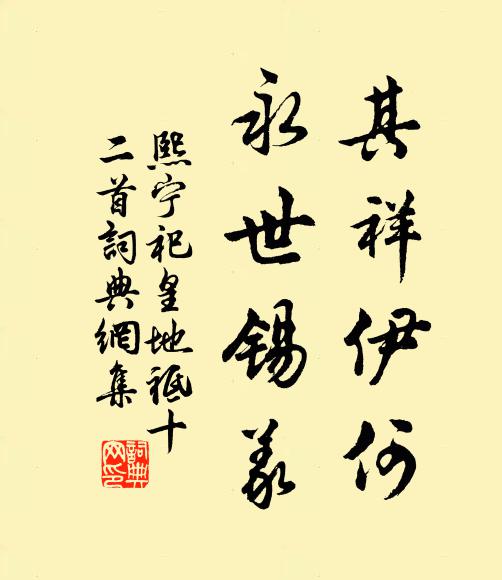 其祥伊何
永世锡羡
熙宁祀皇地祗十
二首詞典網集
詞典
网印